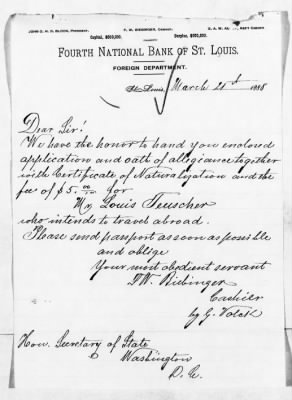 JOHN C. H. D. BLOCK, PRESIDENT. F. W. BIEBINGER, CASHIER.
Capital, $500,000. Surplus, $500,000.
FOURTH NATIONAL BANK OF ST. LOUIS.
FOREIGN DEPARTMENT.
St. Louis, March 21st
Dear Sir!
We have the honor to hand you enclosed
application and oath of allegiance together
with Certificate of Naturalization and the
fee of $5.00 for
Mr. Louis Teuscher
who intends to travel abroad.
Please send passport as soon as possible
and oblige
Your most obedient servant
F.W. Biebinger
Cashier
by G.
Hon. Secretary of State
Washington
D. C.